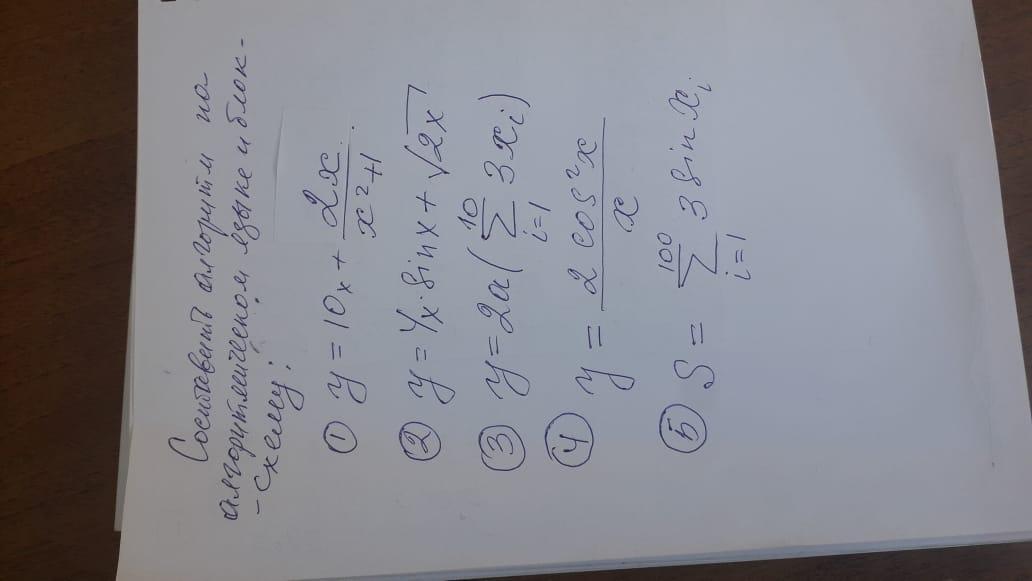 Составить алгоритм на
алгоритмическом языке и блок-
-схему:
① y = 10x + 2x / (x²+1)
② y = 4x·sinx + √2x
③ y = 2a(∑_{i=1}^{10} 3x_i)
④ y = 2 cos²x / x
⑤ S = ∑_{i=1}^{100} 3 sin x_i